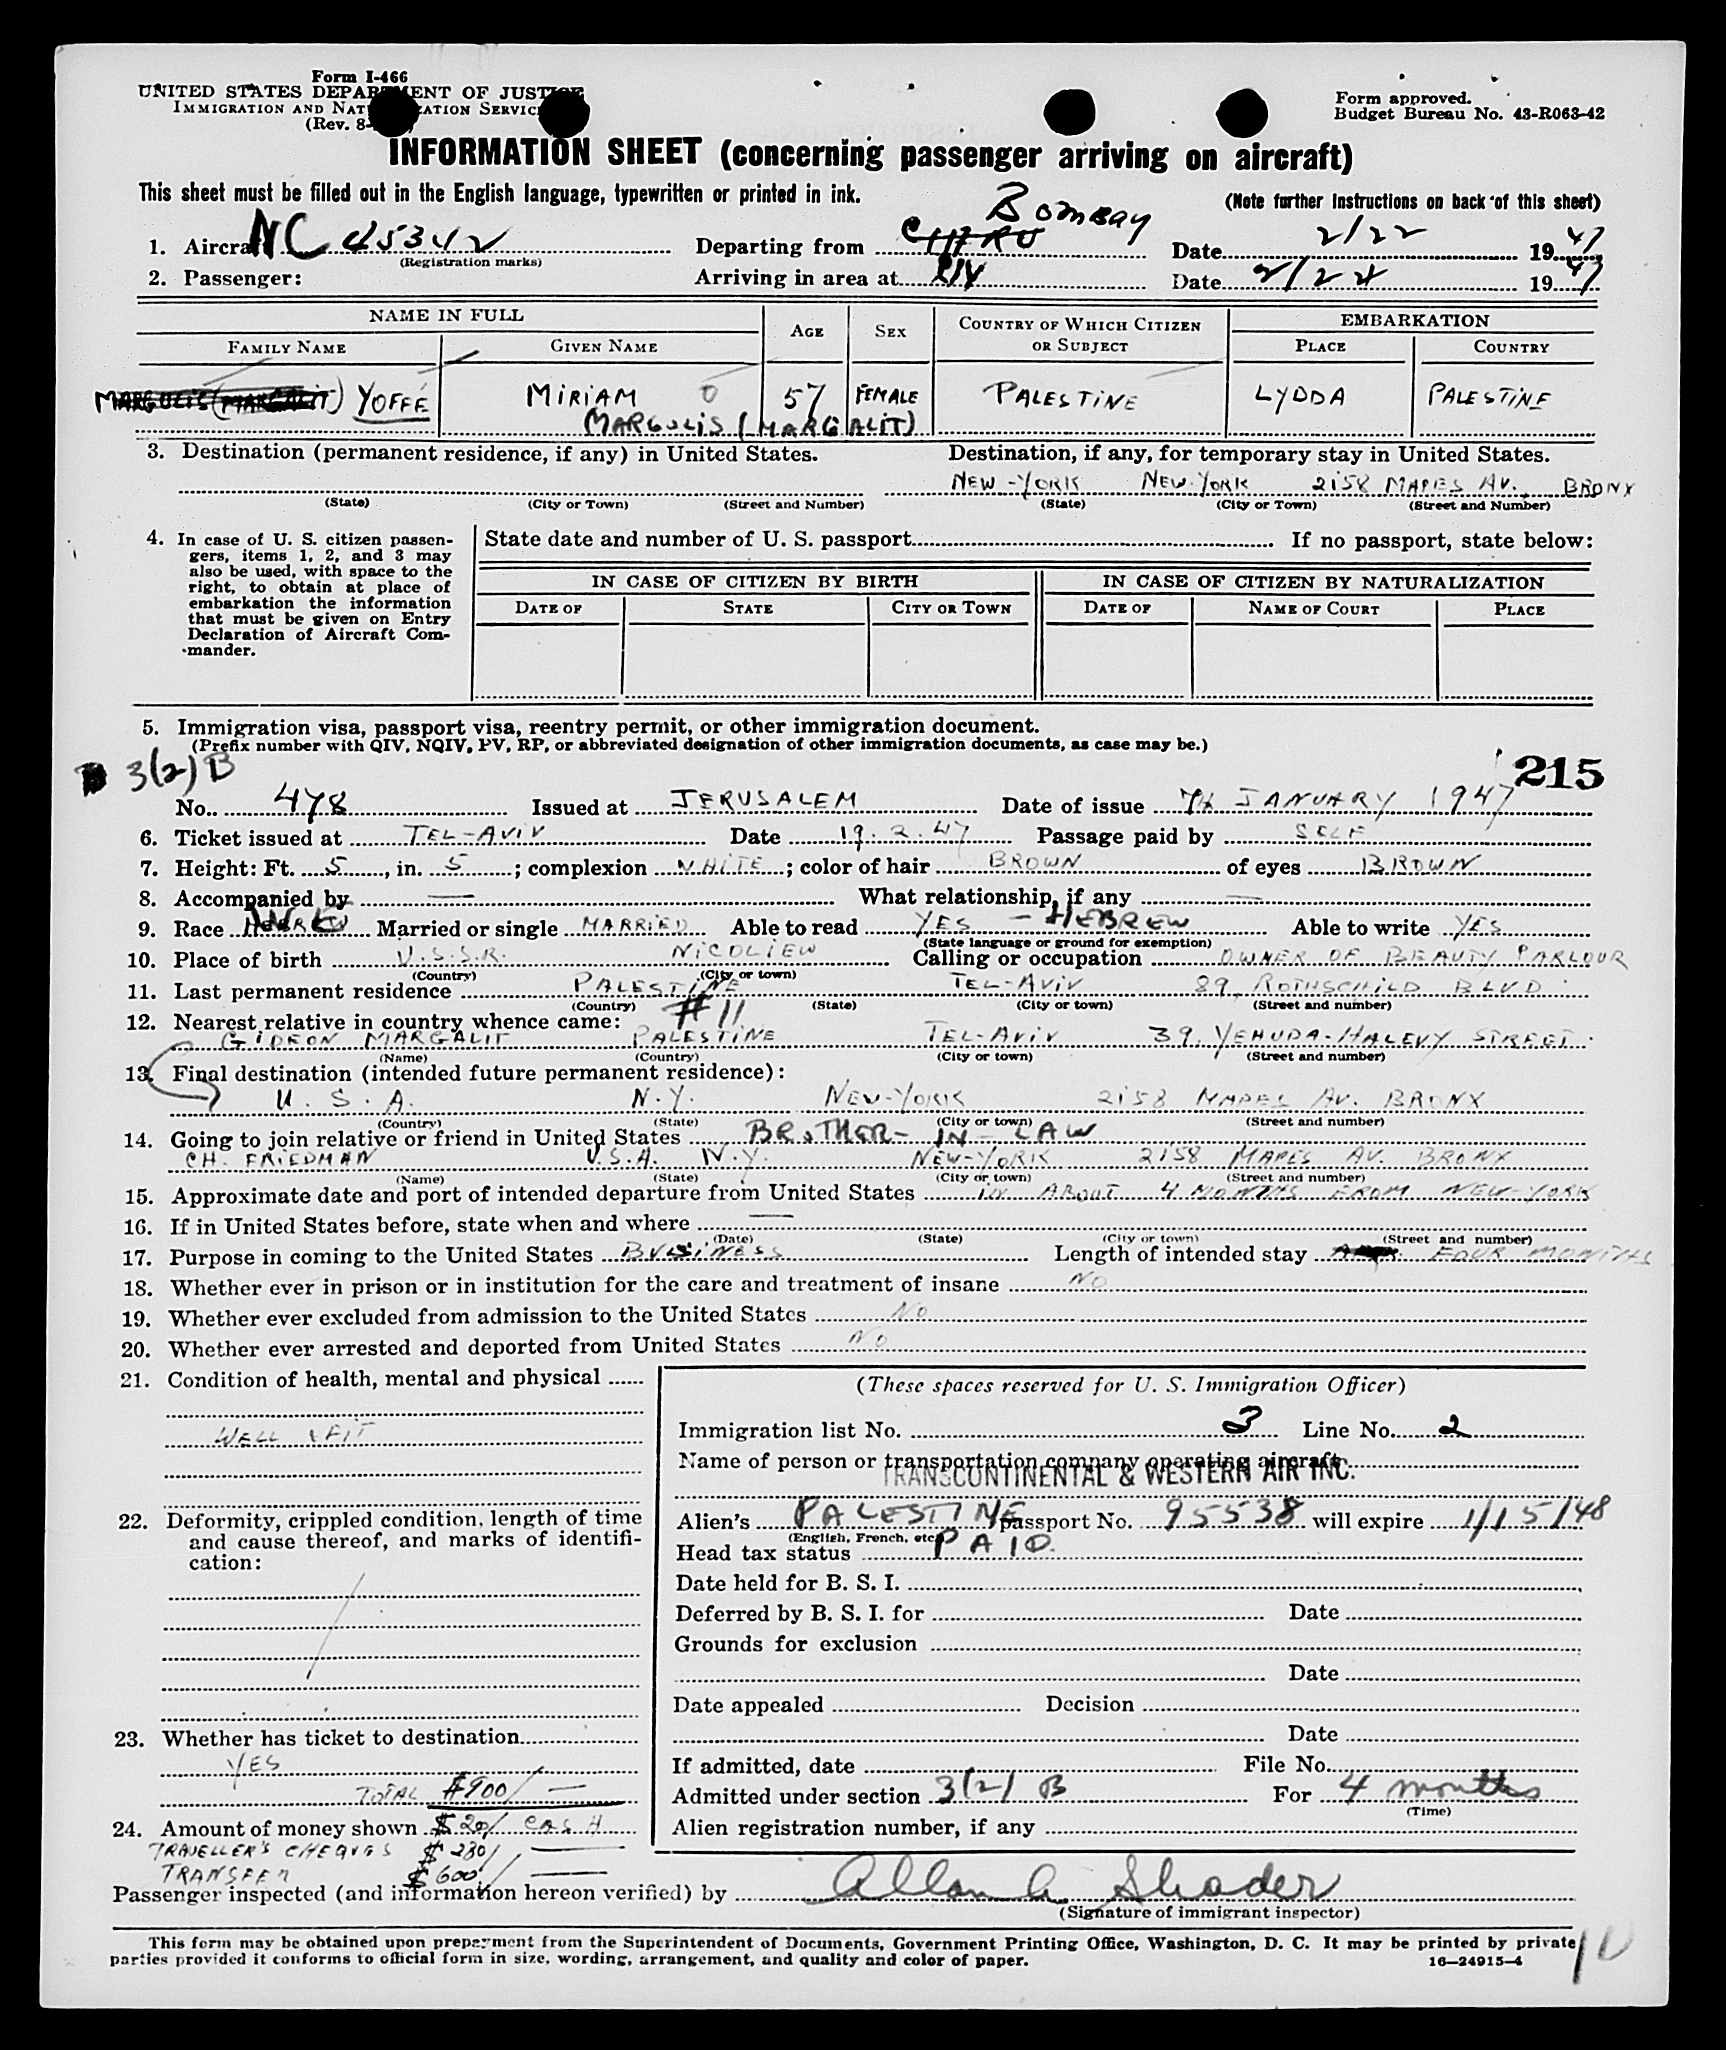 Form I-466
UNITED STATES DEPARTMENT OF JUSTICE
IMMIGRATION AND NATURALIZATION SERVICE
(Rev. 8-
Form approved.
Budget Bureau No. 43-R063-42
INFORMATION SHEET (concerning passenger arriving on aircraft)
This sheet must be filled out in the English language, typewritten or printed in ink.
(Note further instructions on back of this sheet)
Bombay
1. Aircraft NC 45342 Departing from CAIRO Date 2/22 1947
(Registration marks)
2. Passenger: Arriving in area at Date 2/24 1947
NAME IN FULL AGE SEX COUNTRY OF WHICH CITIZEN OR SUBJECT EMBARKATION
FAMILY NAME GIVEN NAME PLACE COUNTRY
MARGULIS (MARGALIT) YOFFÉ MIRIAM 0 57 FEMALE PALESTINE LYDDA PALESTINE
MARGULIS (MARGALIT)
3. Destination (permanent residence, if any) in United States. Destination, if any, for temporary stay in United States.
NEW-YORK NEW-YORK 2158 MAPES AV. BRONX
(State) (City or Town) (Street and Number) (State) (City or Town) (Street and Number)
4. In case of U. S. citizen passengers, items 1, 2, and 3 may also be used, with space to the right, to obtain at place of embarkation the information that must be given on Entry Declaration of Aircraft Commander.
State date and number of U. S. passport If no passport, state below:
IN CASE OF CITIZEN BY BIRTH IN CASE OF CITIZEN BY NATURALIZATION
DATE OF STATE CITY OR TOWN DATE OF NAME OF COURT PLACE
5. Immigration visa, passport visa, reentry permit, or other immigration document.
(Prefix number with QIV, NQIV, PV, RP, or abbreviated designation of other immigration documents, as case may be.)
3(2) B 215
No. 478 Issued at JERUSALEM Date of issue 7th JANUARY 1947
6. Ticket issued at TEL-AVIV Date 19.2.47 Passage paid by SELF
7. Height: Ft. 5, in. 5; complexion WHITE; color of hair BROWN of eyes BROWN
8. Accompanied by — What relationship, if any —
9. Race HEBREW Married or single MARRIED Able to read YES - HEBREW Able to write YES
(State language or ground for exemption)
10. Place of birth U.S.S.R. NICOLIEW Calling or occupation OWNER OF BEAUTY PARLOUR
(Country) (City or town)
11. Last permanent residence PALESTINE TEL-AVIV 89, ROTHSCHILD BLVD
(Country) (State) (City or town) (Street and number)
12. Nearest relative in country whence came: #11
GIDEON MARGALIT PALESTINE TEL-AVIV 39, YEHUDA-HALEVY STREET
(Name) (Country) (City or town) (Street and number)
13. Final destination (intended future permanent residence):
U.S.A. N.Y. NEW-YORK 2158 MAPES AV. BRONX
(Country) (State) (City or town) (Street and number)
14. Going to join relative or friend in United States BROTHER-IN-LAW
CH. FRIEDMAN U.S.A. N.Y. NEW-YORK 2158 MAPES AV. BRONX
(Name) (State) (City or town) (Street and number)
15. Approximate date and port of intended departure from United States IN ABOUT 4 MONTHS FROM NEW-YORK
16. If in United States before, state when and where —
(Date) (State) (City or town) (Street and number)
17. Purpose in coming to the United States BUSINESS Length of intended stay FOUR MONTHS
18. Whether ever in prison or in institution for the care and treatment of insane NO
19. Whether ever excluded from admission to the United States NO
20. Whether ever arrested and deported from United States NO
21. Condition of health, mental and physical
WELL & FIT
22. Deformity, crippled condition, length of time and cause thereof, and marks of identification:
/
23. Whether has ticket to destination
YES
TOTAL $900/—
24. Amount of money shown $20/ CASH
TRAVELLER'S CHEQUES $280/—
TRANSFER $600/—
(These spaces reserved for U. S. Immigration Officer)
Immigration list No. 3 Line No. 2
Name of person or transportation company operating aircraft
TRANSCONTINENTAL & WESTERN AIR INC.
Alien's PALESTINE passport No. 95538 will expire 1/15/48
(English, French, etc.)
Head tax status PAID
Date held for B. S. I.
Deferred by B. S. I. for Date
Grounds for exclusion
Date
Date appealed Decision
Date
If admitted, date File No.
Admitted under section 3(2) B For 4 months
(Time)
Alien registration number, if any
Passenger inspected (and information hereon verified) by Allan A. Shader
(Signature of immigrant inspector)
This form may be obtained upon prepayment from the Superintendent of Documents, Government Printing Office, Washington, D. C. It may be printed by private
parties provided it conforms to official form in size, wording, arrangement, and quality and color of paper. 16—24915-4